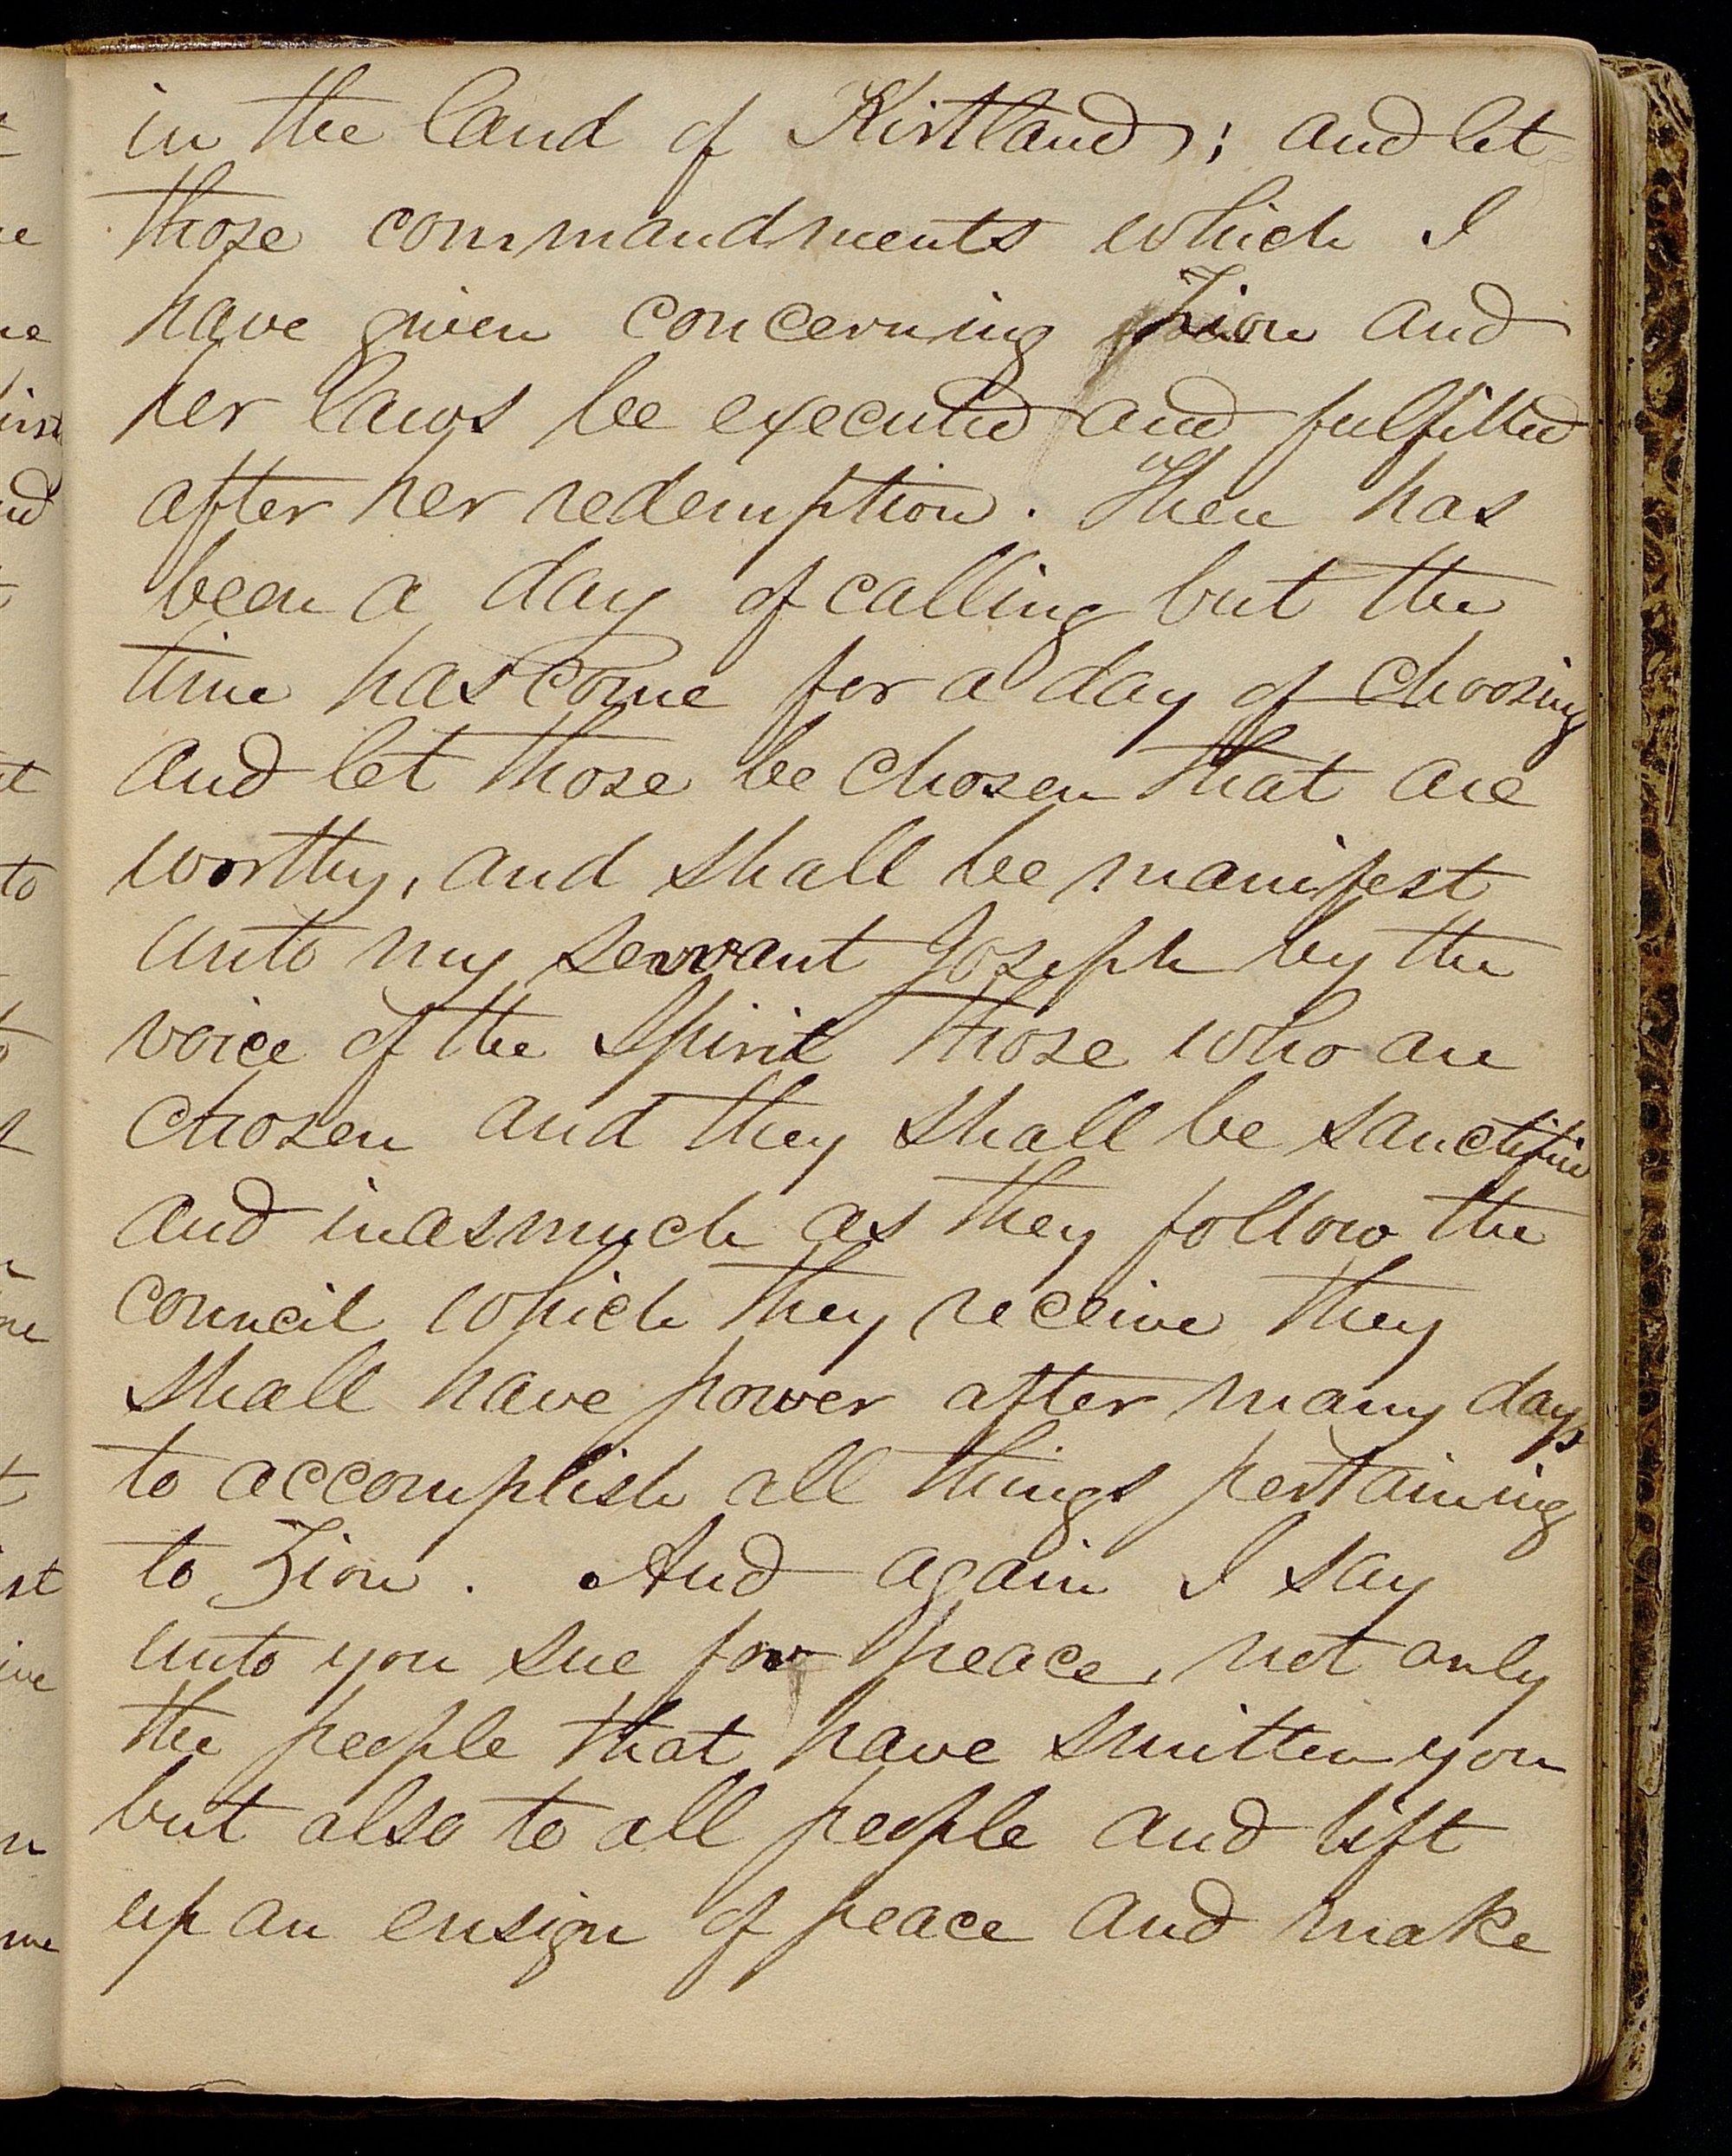 in the land of Kirtland; and let
those commandments which I
have given concerning Zion and
her laws be executed and fulfilled
after her redemption. There has
been a day of calling but the
time has come for a day of choosing
and let those be chosen that are
worthy, and shall be manifest
unto my servant Joseph by the
voice of the Spirit those who are
chosen and they shall be sanctified
and inasmuch as they follow the
council which they receive they
shall have power after many days
to accomplish all things pertaining
to Zion. And again I say
unto you sue for peace, not only
the people that have smitten you
but also to all people and lift
up an ensign of peace and make